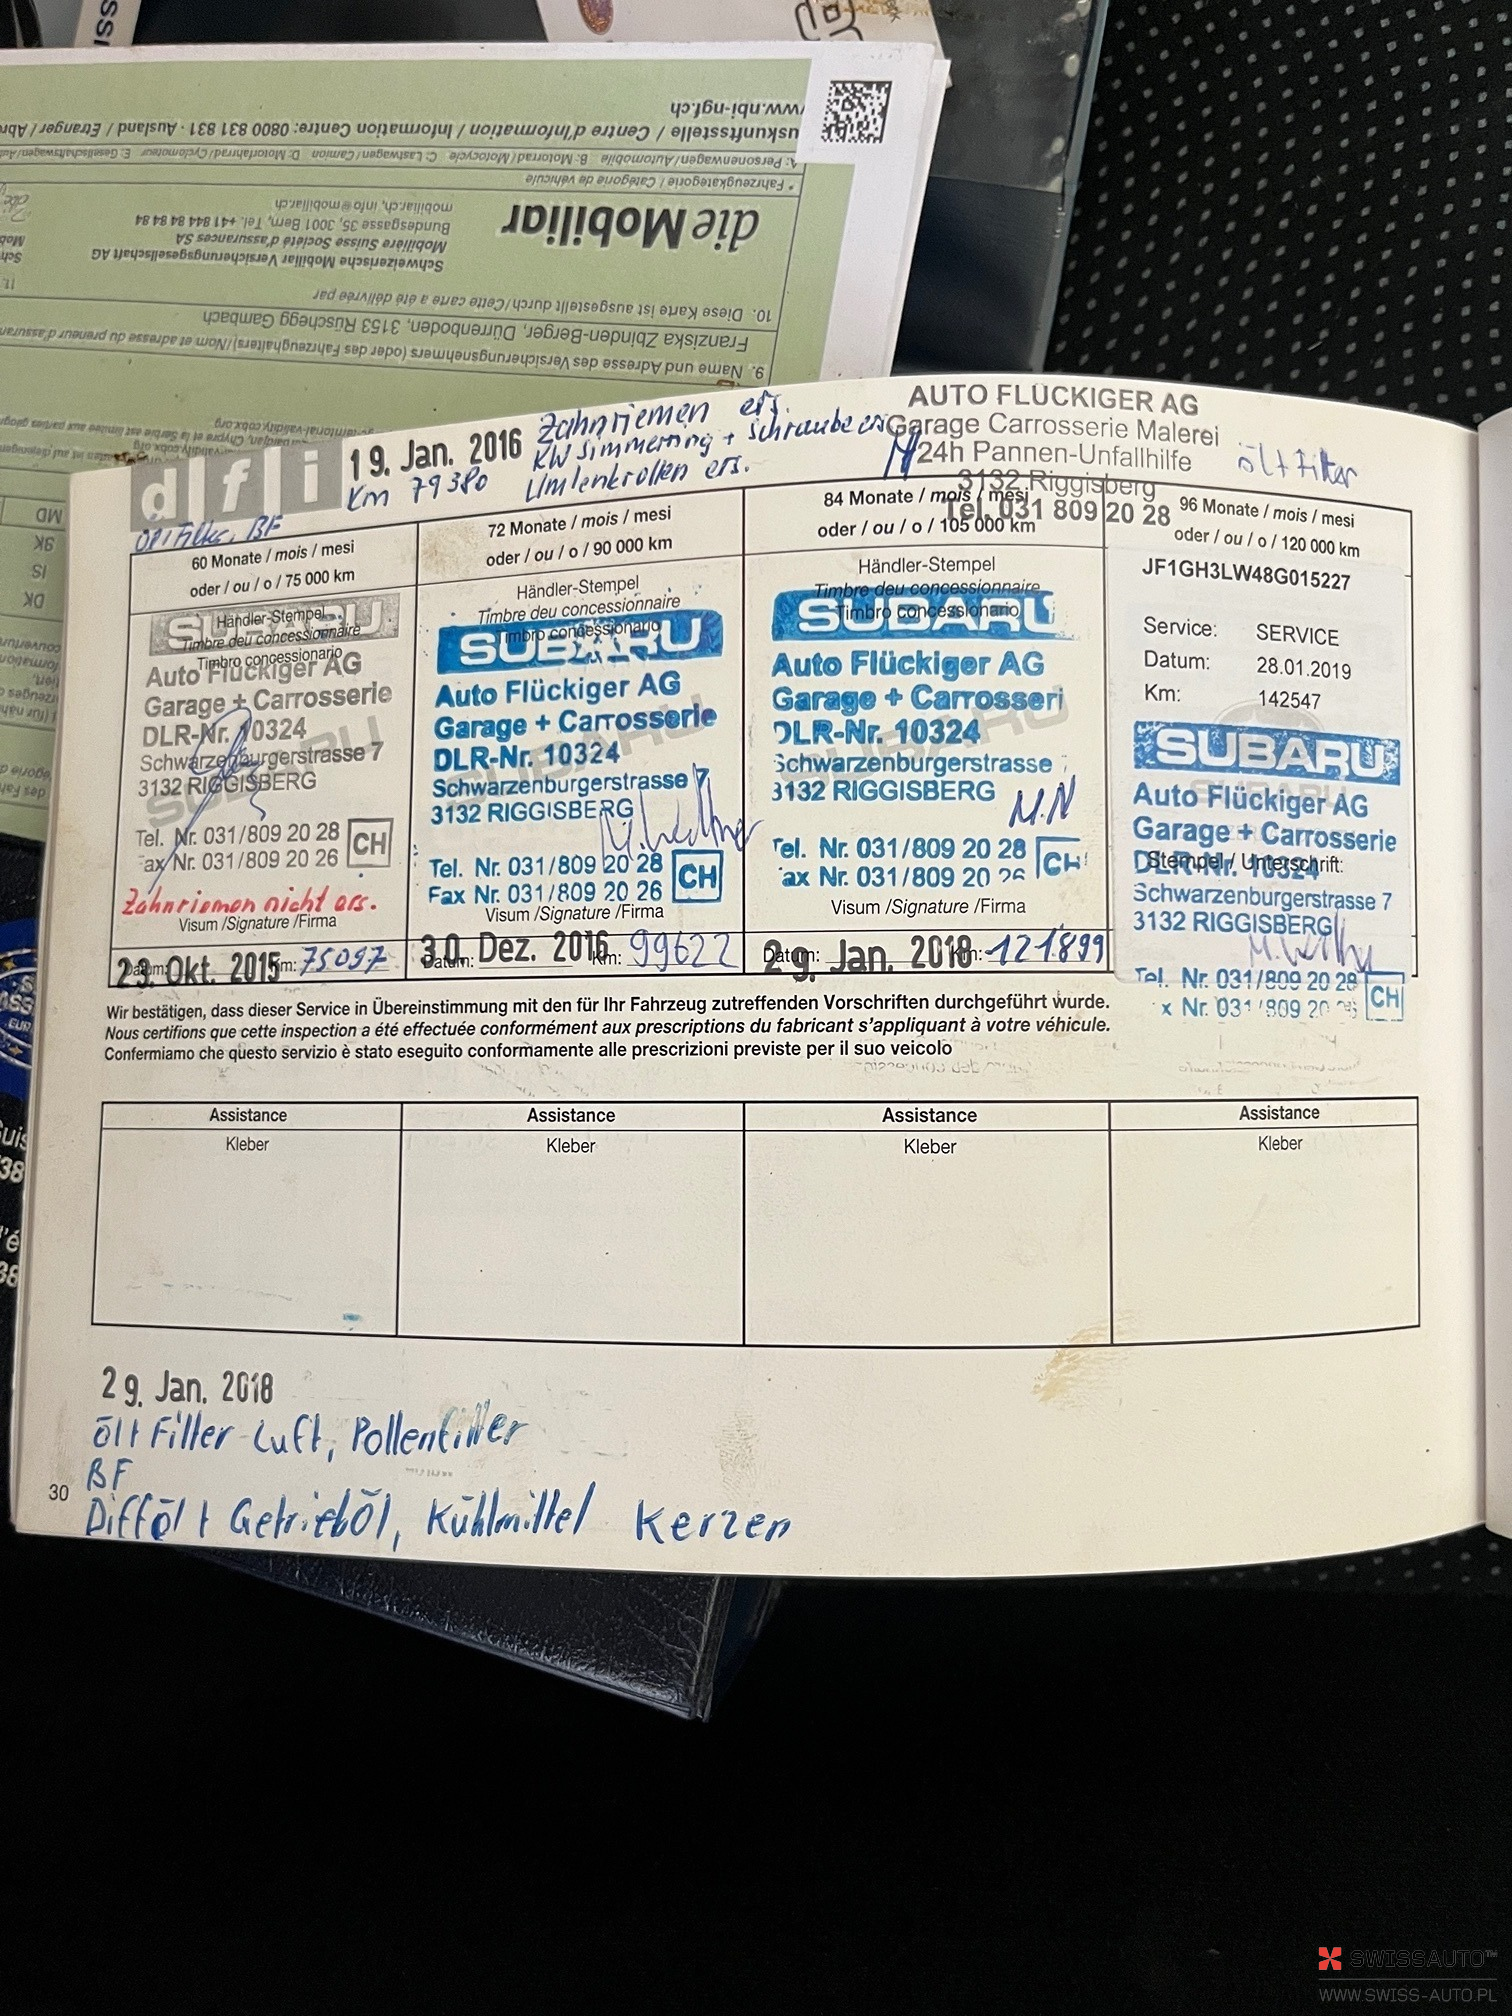 www.nbi-ngf.ch
uskunftsstelle / Centre d'Information / Information Centre: 0800 831 831 · Ausland / Etranger / Abr
A: Personenwagen/Automobile B: Motorrad/Motocycle C: Lastwagen/Camion D: Motorfahrrad/Cyclomoteur E: Gesellschaftswagen/Au
* Fahrzeugkategorie / Catégorie de véhicule
die Mobiliar
mobiliar.ch, info@mobiliar.ch
Bundesgasse 35, 3001 Bern, Tel. +41 844 84 84 84
Mobilière Suisse Société d'assurances SA
Schweizerische Mobiliar Versicherungsgesellschaft AG
10. Diese Karte ist ausgestellt durch/Cette carte a été délivrée par
Franziska Zbinden-Berger, Dürrenboden, 3153 Rüschegg Gambach
9. Name und Adresse des Versicherungsnehmers (oder des Fahrzeughalters)/Nom et adresse du preneur d'assuran
MD
SK
IS
DK
dfi
19. Jan. 2016
Km 79380
Zahnriemen ers.
KW Simmerring + Schraube ers
Umlenkrollen ers.
AUTO FLÜCKIGER AG
Garage Carrosserie Malerei
24h Pannen-Unfallhilfe
3132 Riggisberg
Tel. 031 809 20 28
Öl+Filter
Öl+Filter, BF
60 Monate / mois / mesi
oder / ou / o / 75 000 km
Händler-Stempel
Timbre deu concessionnaire
Timbro concessionario
SUBARU
Auto Flückiger AG
Garage + Carrosserie
DLR-Nr. 10324
Schwarzenburgerstrasse 7
3132 RIGGISBERG
Tel. Nr. 031/809 20 28
ax Nr. 031/809 20 26
CH
Zahnriemen nicht ers.
Visum /Signature /Firma
Datum: 23. Okt. 2015 Km: 75097
72 Monate / mois / mesi
oder / ou / o / 90 000 km
Händler-Stempel
Timbre deu concessionnaire
Timbro concessionario
SUBARU
Auto Flückiger AG
Garage + Carrosserie
DLR-Nr. 10324
Schwarzenburgerstrasse 7
3132 RIGGISBERG
Tel. Nr. 031/809 20 28
Fax Nr. 031/809 20 26
CH
Visum /Signature /Firma
Datum: 30. Dez. 2016 Km: 99622
84 Monate / mois / mesi
oder / ou / o / 105 000 km
Händler-Stempel
Timbre deu concessionnaire
Timbro concessionario
SUBARU
Auto Flückiger AG
Garage + Carrosseri
DLR-Nr. 10324
Schwarzenburgerstrasse
3132 RIGGISBERG
Tel. Nr. 031/809 20 28
ax Nr. 031/809 20 26
CH
Visum /Signature /Firma
Datum: 29. Jan. 2018 Km: 121899
96 Monate / mois / mesi
oder / ou / o / 120 000 km
JF1GH3LW48G015227
Service: SERVICE
Datum: 28.01.2019
Km: 142547
SUBARU
Auto Flückiger AG
Garage + Carrosserie
DLR-Nr. 10324
Stempel / Unterschrift:
Schwarzenburgerstrasse 7
3132 RIGGISBERG
Tel. Nr. 031/809 20 28
x Nr. 031/809 20 26
CH
Wir bestätigen, dass dieser Service in Übereinstimmung mit den für Ihr Fahrzeug zutreffenden Vorschriften durchgeführt wurde.
Nous certifions que cette inspection a été effectuée conformément aux prescriptions du fabricant s'appliquant à votre véhicule.
Confermiamo che questo servizio è stato eseguito conformamente alle prescrizioni previste per il suo veicolo
Assistance Assistance Assistance Assistance
Kleber Kleber Kleber Kleber
29. Jan. 2018
Öl+Filter Luft, Pollenfilter
BF
Difföl + Getrieböl, Kühlmittel Kerzen
30
SWISSAUTO™
WWW.SWISS-AUTO.PL